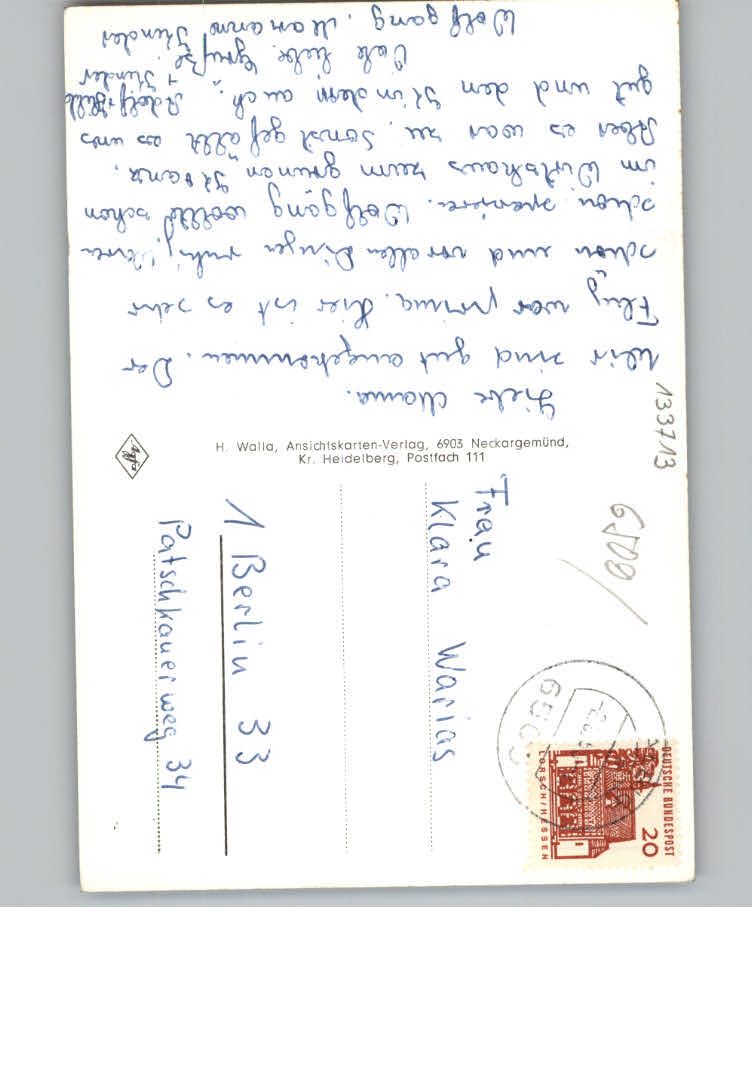 Liebe Mama.
Wir sind gut angekommen. Der
Flug war prima. Hier ist es sehr
schön und vor allen Dingen ruhig. Waren
schon spazieren. Wolfgang wollte schon
im Wirtshaus zum grünen Kranz.
Aber es war zu. Sonst gefällt es uns
gut und den Kindern auch.
Viele liebe Grüße
Wolfgang, Marianne Kinder
Adolf + Hilde
+ Kinder
133713
H. Walla, Ansichtskarten-Verlag, 6903 Neckargemünd,
Kr. Heidelberg, Postfach 111
Agfa
Frau
Klara Warias
1 Berlin 33
Patschkauerweg 34
6509/
DEUTSCHE BUNDESPOST
20
LORSCH/HESSEN